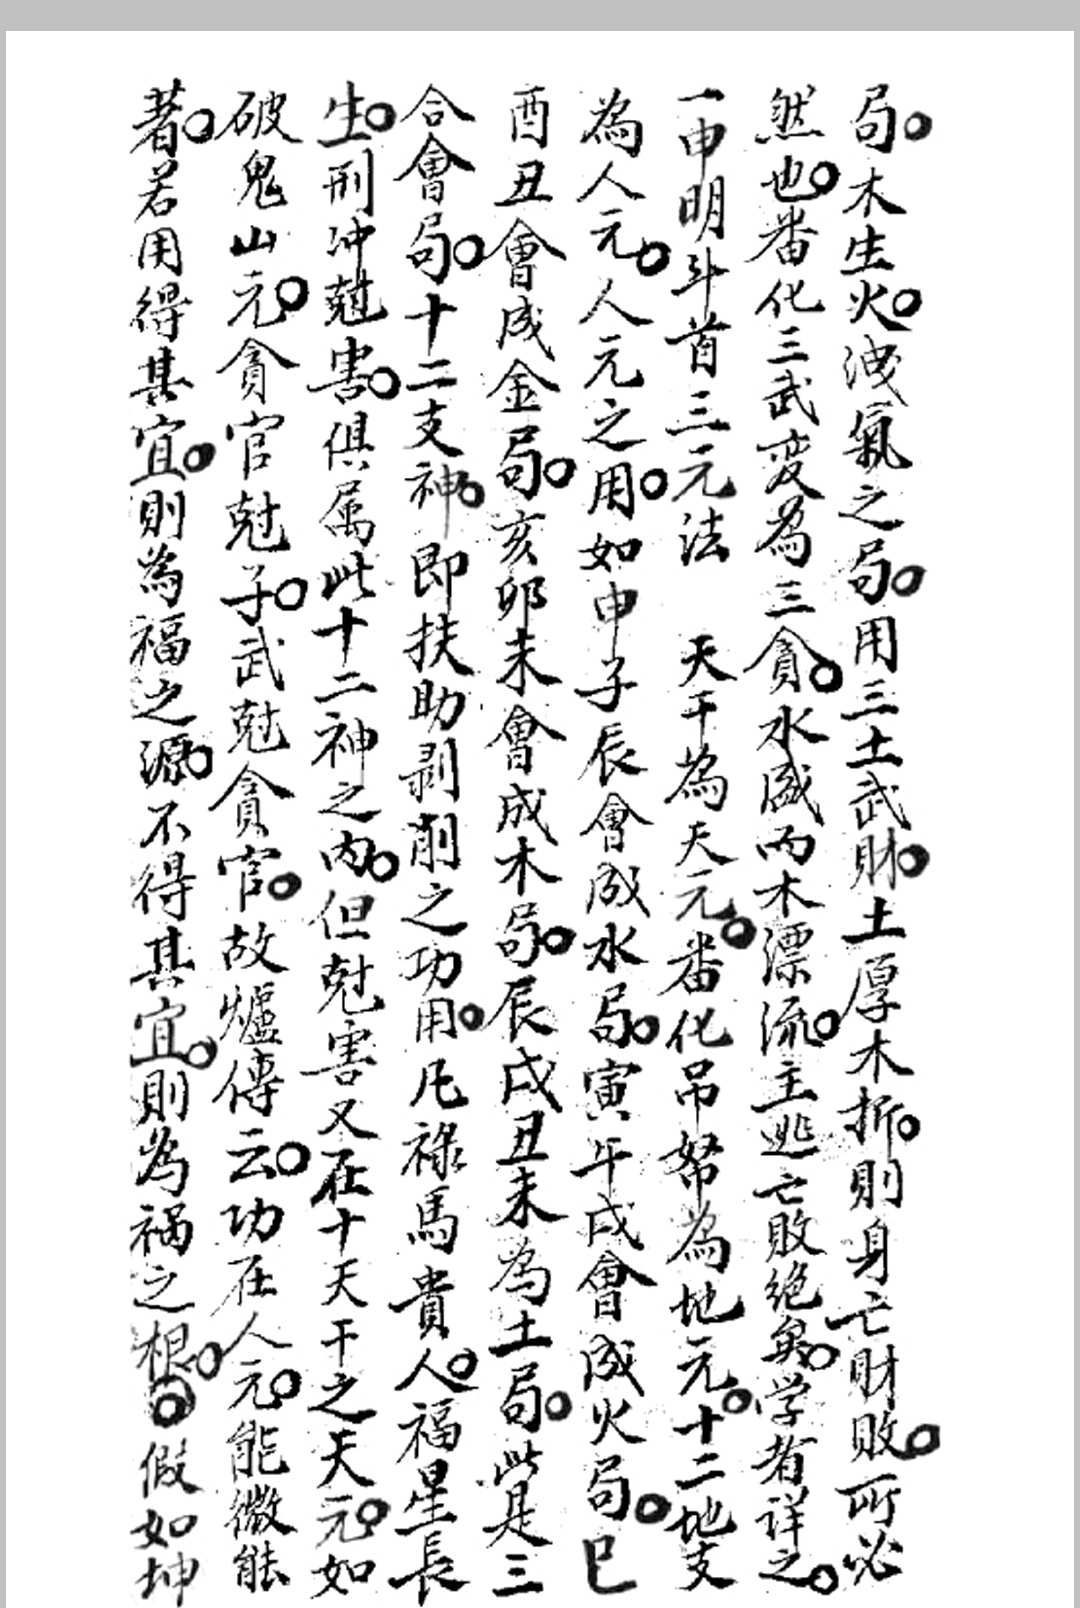 局木生火洩氣之局用三土武財土厚木折則身亡財敗所必
然也番化三武变為三貪水盛丙木漂流主逃亡敗絶矣学者详之
一申明斗首三元法 天干為天元番化吊帑為地元十二地支
為人元人元之用如申子辰會成水局寅午戌會成火局巳
酉丑會成金局亥卯未會成木局辰戌丑未為土局此是三
合會局十二支神即扶助剥削之功用凡祿馬貴人福星長
生刑冲尅害俱属此十二神之内但尅害又在十天干之天元如
破鬼山元貪官尅子武尅貪官故爐傳云功在人元能微能
著若用得其宜則為福之源不得其宜則為祸之根假如坤